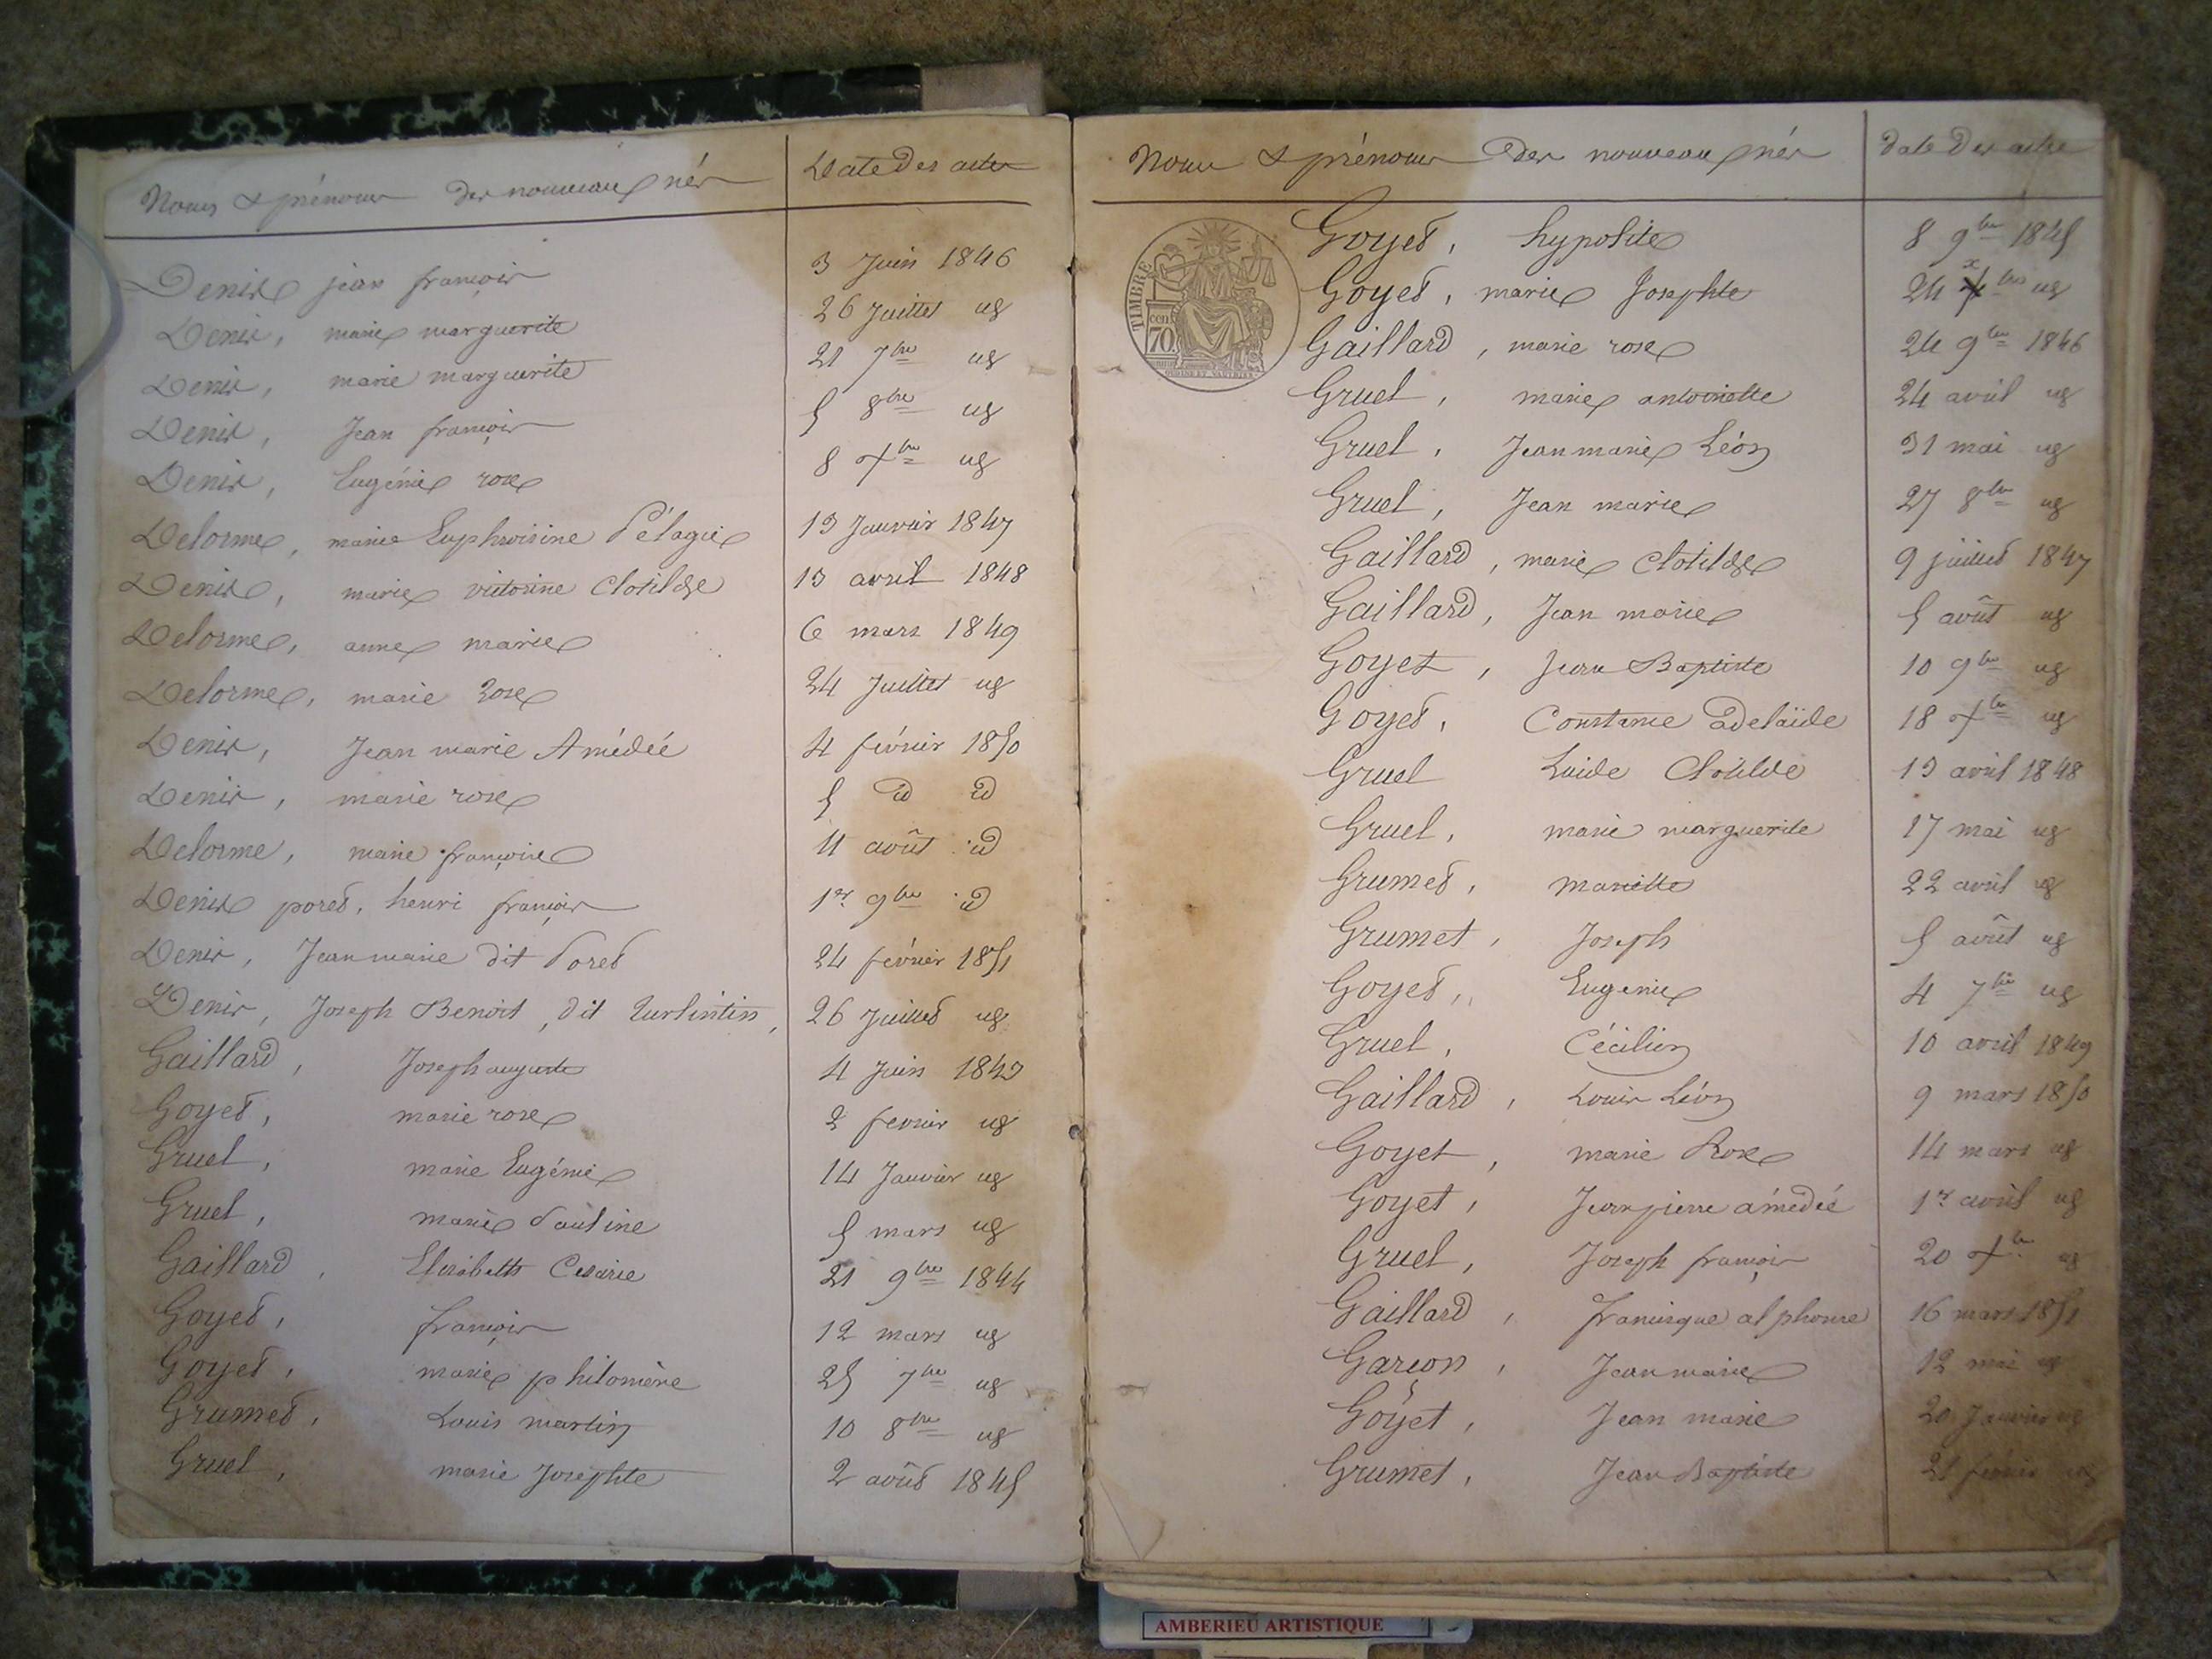 Noms & prénoms des nouveaux nés Date des actes
Denis jean françois 3 Juin 1846
Denis, marie marguerite 26 Juillet ug
Denis, marie marguerite 21 7bre ug
Denis, Jean françois 5 8bre ug
Denis, Eugénie rose 8 Xbre ug
Delorme, marie Euphroisine Pélagie 13 Janvier 1847
Denis, marie victorine Clotilde 13 avril 1848
Delorme, anne marie 6 mars 1849
Delorme, marie Rose 24 Juillet ug
Denis, Jean marie Amédée 4 février 1850
Denis, marie rose 5 id id
Delorme, marie françoise 11 août id
Denis poret, henri françois 1er 9bre id
Denis, Jean marie dit Poret 24 février 1851
Denis, Joseph Benoit, dit Turlintin, 26 Juillet ug
Gaillard, Joseph auguste 4 Juin 1843
Goyet, marie rose 2 fevrier ug
Gruel, marie Eugénie 14 Janvier ug
Gruel, marie Pauline 5 mars ug
Gaillard, Elisabeth Cesarie 21 9bre 1844
Goyet, françois 12 mars ug
Goyet, marie philomène 25 7bre ug
Grumet, Louis martin 10 8bre ug
Gruel, marie Josephte 2 août 1845
Noms & prénoms des nouveaux nés Date des actes
TIMBRE
cent
70
Goyet, hypolite 8 9bre 1845
Goyet, marie Josephte 24 Xbre ug
Gaillard, marie rose 24 9bre 1846
Gruel, marie antoinette 24 avril ug
Gruel, Jean marie Léon 31 mai ug
Gruel, Jean marie 27 8bre ug
Gaillard, marie Clotilde 9 juillet 1847
Gaillard, Jean marie 5 août ug
Goyet, Jean Baptiste 10 9bre ug
Goyet, Constance adelaïde 18 Xbre ug
Gruel Luide Clotilde 13 avril 1848
Gruel, marie marguerite 17 mai ug
Grumet, Mariette 22 avril ug
Grumet, Joseph 5 août ug
Goyet, Eugenie 4 7bre ug
Gruel, Cécilien 10 avril 1849
Gaillard, Louis Léon 9 mars 1850
Goyet, marie Rose 14 mars ug
Goyet, Jean pierre amédée 1er avril ug
Gruel, Joseph françois 20 Xbre ug
Gaillard, francisque alphonse 16 mars 1851
Garçon, Jean marie 12 mai ug
Goyet, Jean marie 20 Janvier ug
Grumet, Jean Baptiste 21 février ug
AMBERIEU ARTISTIQUE